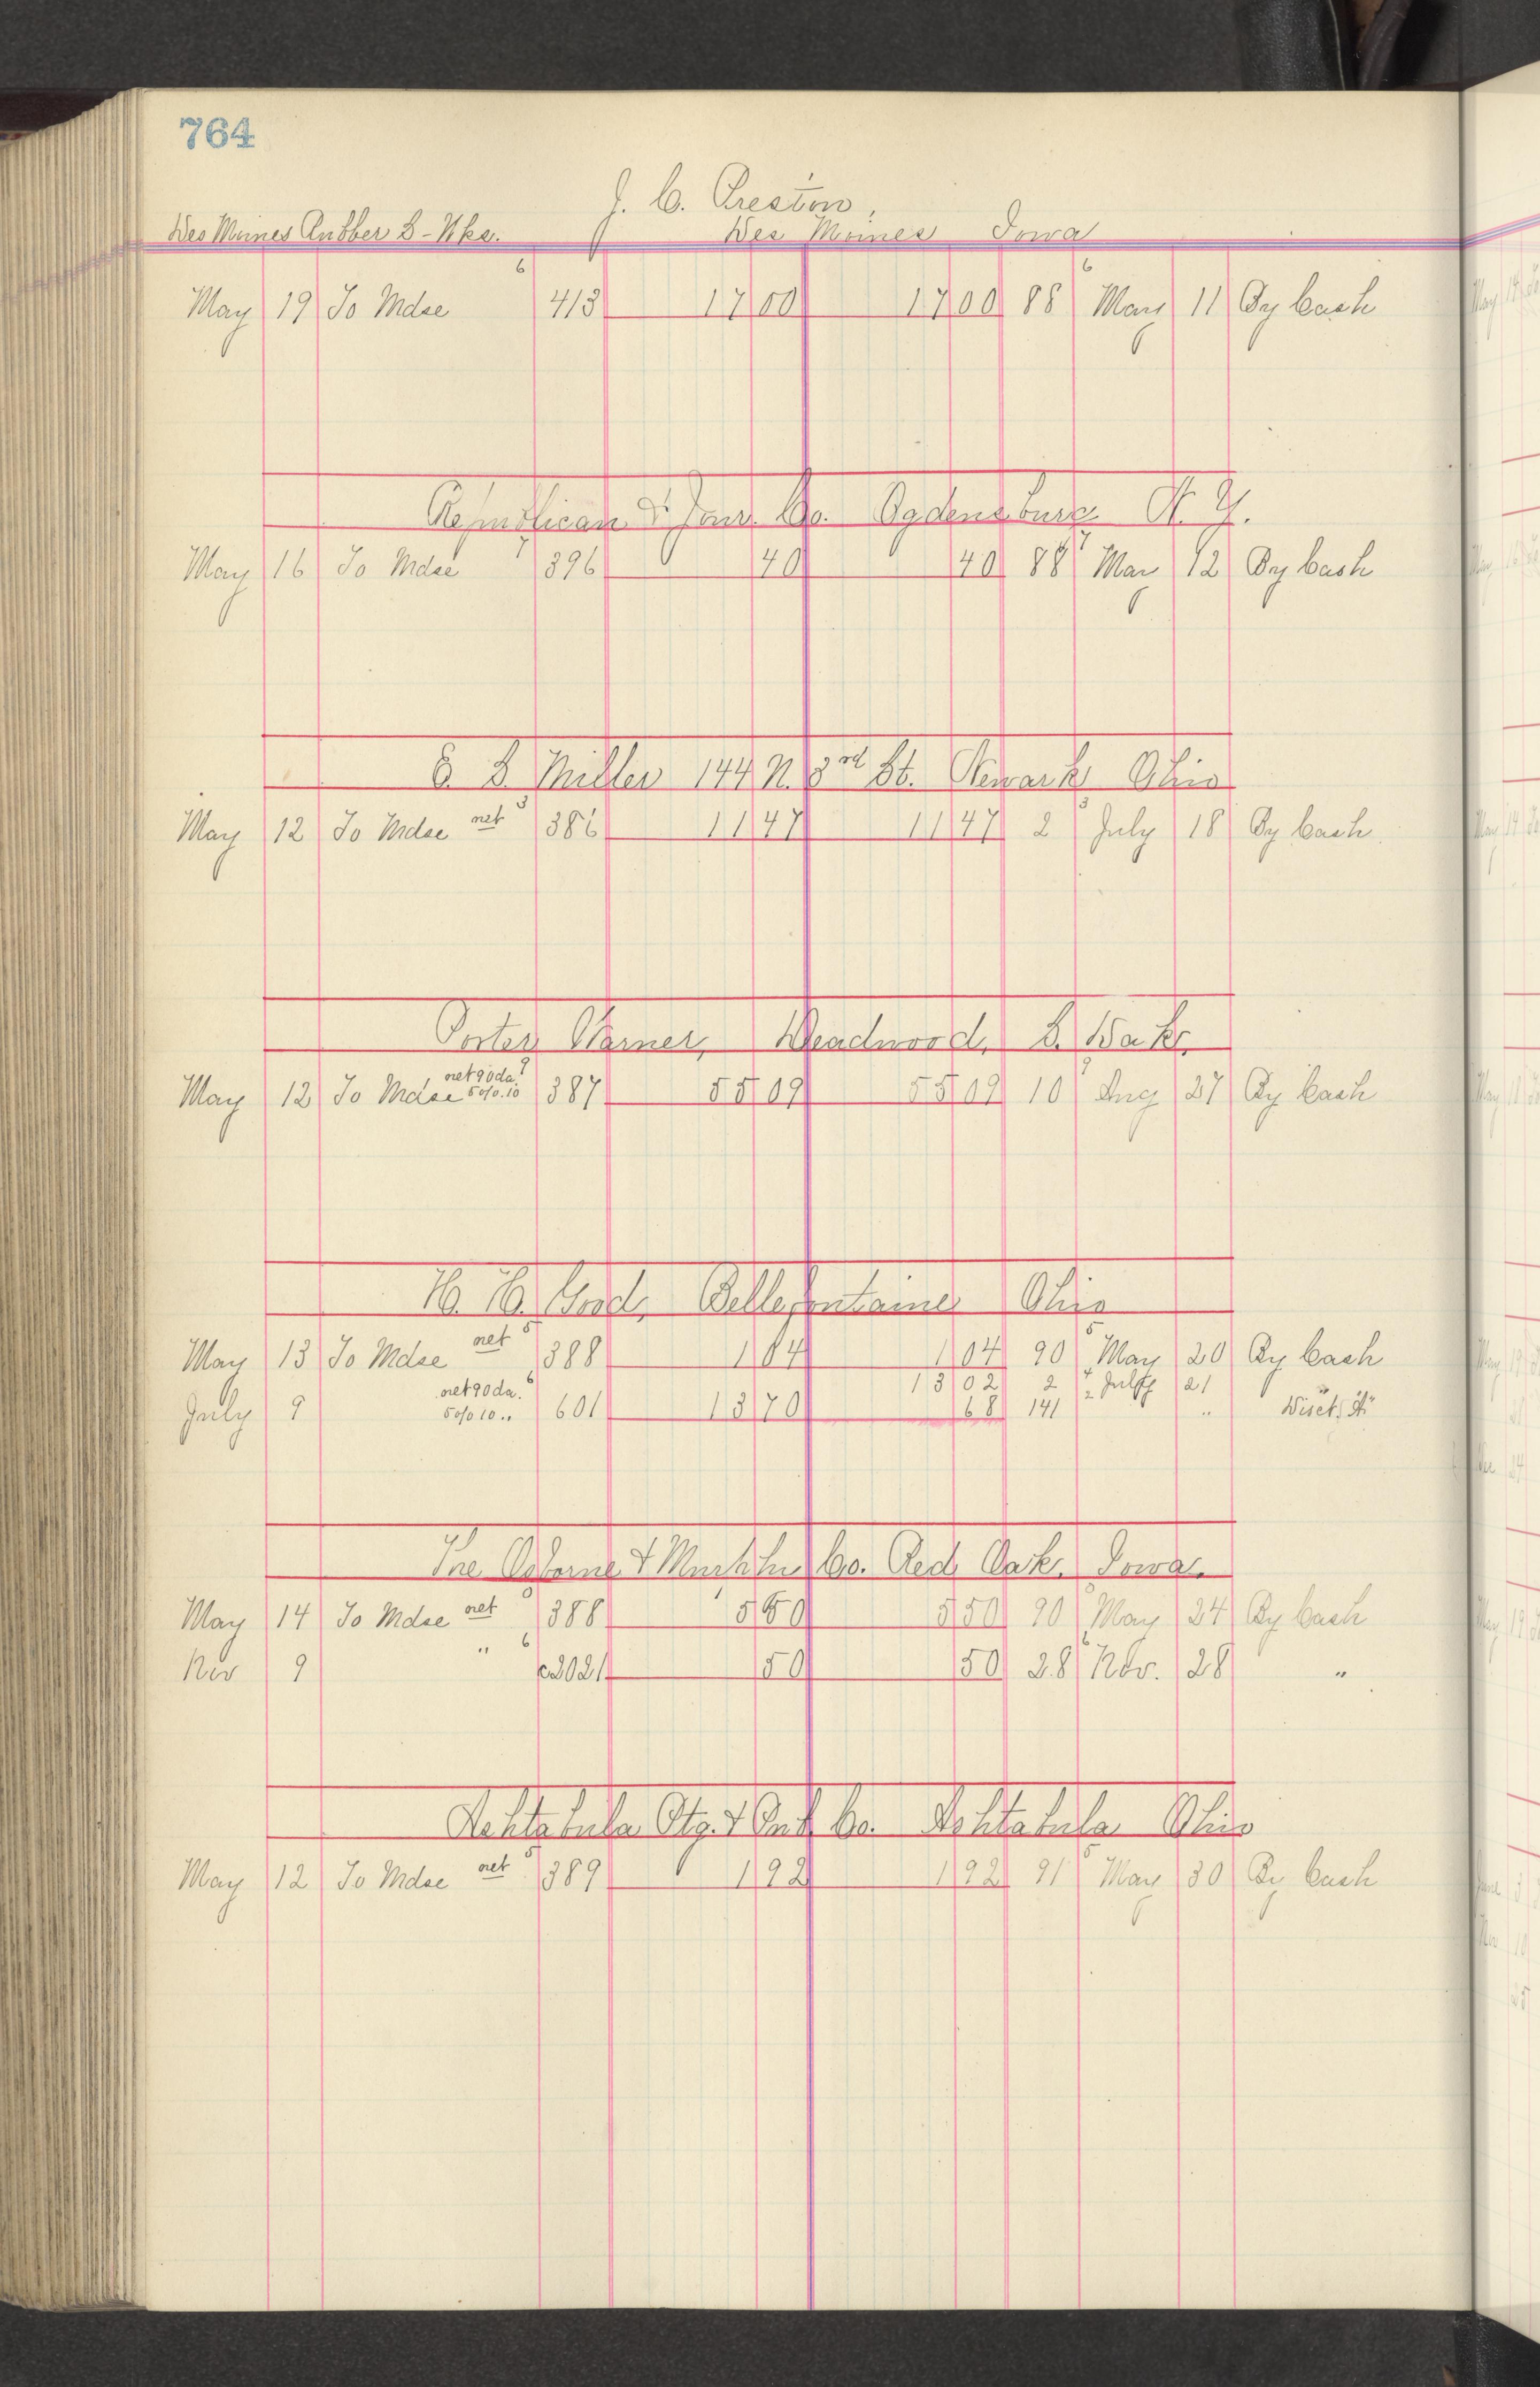 764
J. C. Preston,
Des Moines Rubber S-Wks. Des Moines Iowa
May 19 To Mdse 6 413 17 00 17 00 88 6 May 11 By Cash
Republican & Jour. Co. Ogdensburg N. Y.
May 16 To Mdse 7 396 40 40 88 7 May 12 By Cash
E. S. Miller 144 N. 3rd St. Newark Ohio
May 12 To Mdse net 5 386 11 47 11 47 2 5 July 18 By Cash
Porter Warner, Deadwood, S. Dak.
net 90 da. 9
May 12 To Mdse 5 o/o 10 387 55 09 55 09 10 9 Aug 27 By Cash
Bellefontaine Ohio
May 13 To Mdse net 5 388 1 04 1 04 90 5 May 20 By Cash
net 90 da. 6 13 02 2 July 21
July 9 5 o/o 10 " 601 13 70 68 141 " Disct.
The Osborne & Co. Red Oak, Iowa.
May 14 To Mdse net 388 5 50 5 50 90 May 24 By Cash
" 6
Nov 9 c2021 50 50 28 6 Nov. 28 "
Ashtabula Ptg. & Pub. Co. Ashtabula Ohio
May 12 To Mdse net 5 389 1 92 1 92 91 5 May 30 By Cash